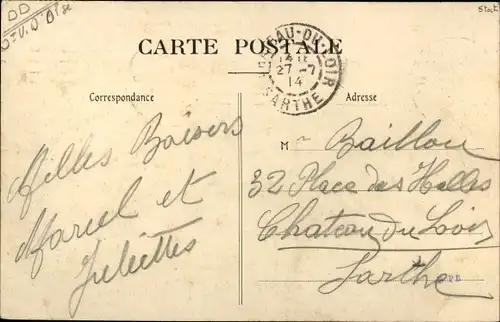 DD
Stock
CARTE POSTALE
CHATEAU-DU-LOIR
27 -7
14
SARTHE
Correspondance
Adresse
Milles Baisers
Marcel et
Juliettes
M r Baillou
32 Place des Halles
Chateau du Loir
Sarthe